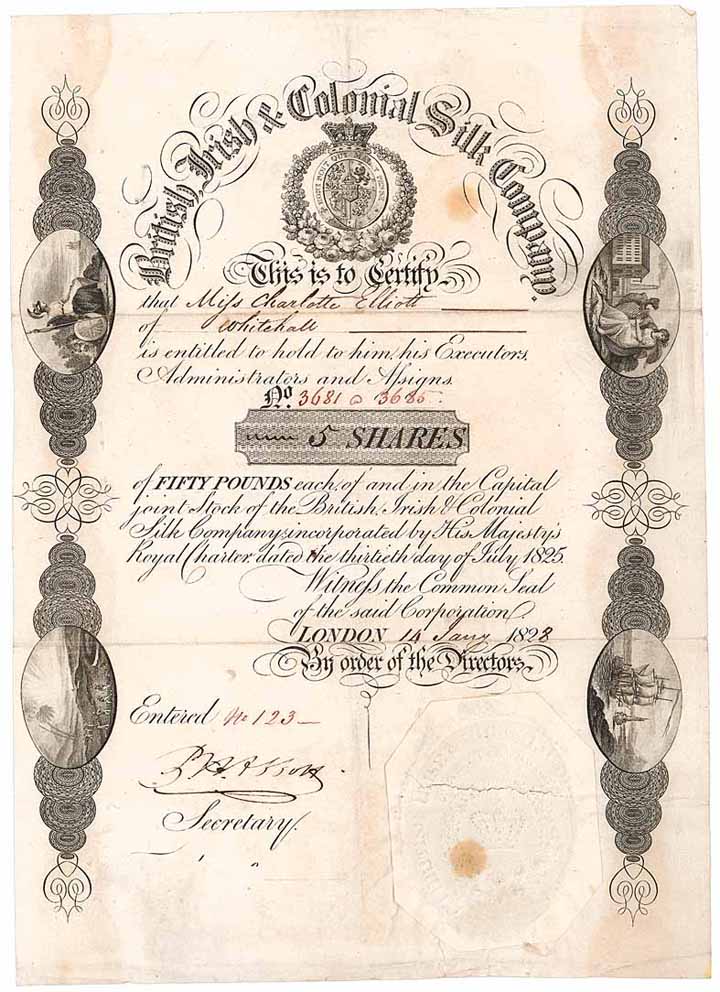 British Irish & Colonial Silk Company.
This is to Certify,
that Miss Charlotte Elliott
of Whitehall
is entitled to hold to him, his Executors,
Administrators and Assigns.
No. 3681 @ 3685
5 SHARES
of FIFTY POUNDS each, of and in the Capital
joint Stock of the British, Irish & Colonial
Silk Company; incorporated by His Majesty's
Royal Charter, dated the thirtieth day of July 1825.
Witness the Common Seal
of the said Corporation.
LONDON 14 Jany 1828
By order of the Directors,
Entered No 123
Secretary.